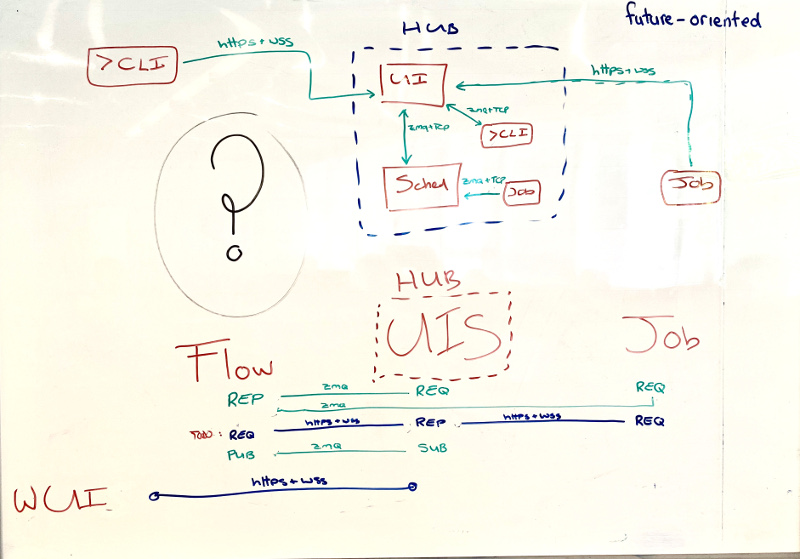 future-oriented
HUB
>CLI
https+wss
UI
https+wss
zmq+TCP
zmq+TCP
>CLI
Sched
zmq+TCP
Job
Job
?
HUB
UIS
Flow
Job
REP
zmq
REQ
REQ
zmq
TODO:
REQ
https+wss
REP
https+wss
REQ
PUB
zmq
SUB
WUI
https+wss